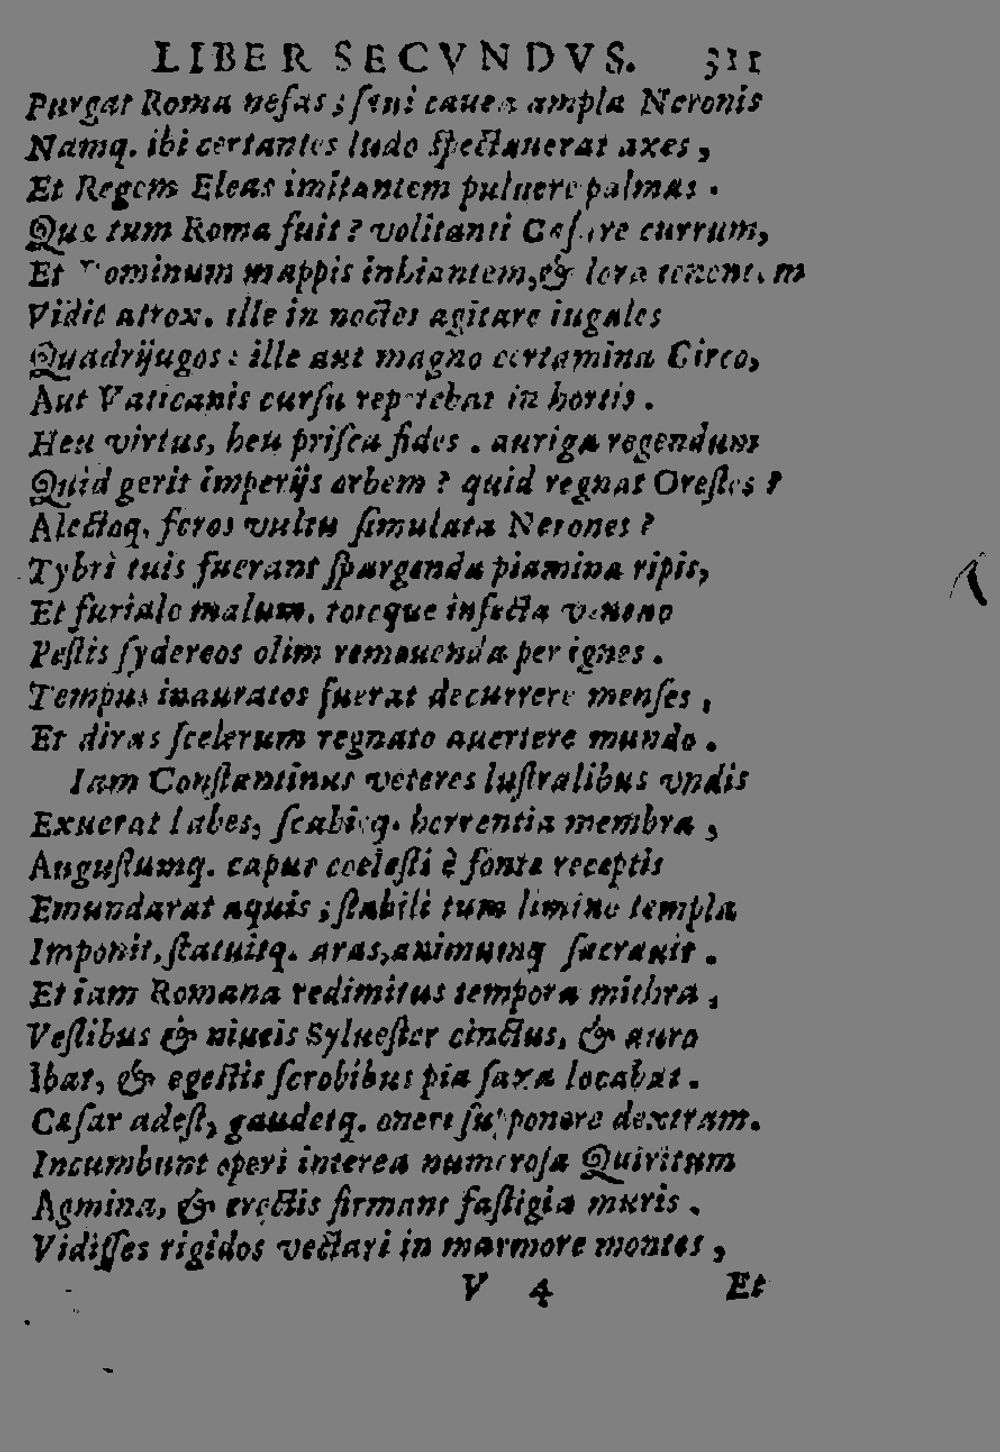 LIBER SECVNDVS. 311
Purgat Roma nefas; sęui cauea ampla Neronis
Namq. ibi certantes ludo spectauerat axes,
Et Regem Eleas imitantem puluere palmas.
Quæ tum Roma fuit? volitanti Cæsare currum,
Et Dominum mappis inhiantem, & lora tenentem
Vidit atrox. ille in noctes agitare iugales
Quadrijugos: ille aut magno certamina Circo,
Aut Vaticanis cursu repetebat in hortis.
Heu virtus, heu prisca fides. auriga regendum
Quid gerit imperijs orbem? quid regnat Orestes?
Alectoq. feros vultu simulata Nerones?
Tybri tuis fuerant spargenda piamina ripis,
Et furiale malum. totque infecta veneno
Pestis sydereos olim remouenda per ignes.
Tempus inauratos fuerat decurrere menses,
Et diras scelerum regnato auertere mundo.
Iam Constantinus veteres lustralibus vndis
Exuerat labes, scabieq. horrentia membra,
Augustumq. caput coelesti è fonte receptis
Emundarat aquis; stabili tum limine templa
Imponit, statuitq. aras, animumq sacrauit.
Et iam Romana redimitus tempora mithra,
Vestibus & niueis Syluester cinctus, & auro
Ibat, & egestis scrobibus pia saxa locabat.
Cæsar adest, gaudetq. oneri supponere dextram.
Incumbunt operi interea numerosa Quiritum
Agmina, & erectis firmant fastigia muris.
Vidisses rigidos vectari in marmore montes,
V 4 Et